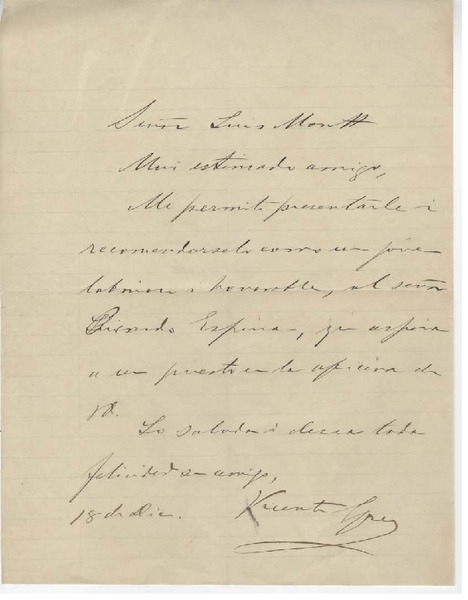 Señor Luis Montt
Mui estimado amigo,
Me permito presentarle i
recomendárselo como un joven
laborioso i honorable, al señor
Ricardo Espina, qe aspira
a un puesto en la oficina de
Vd.
Lo saluda i desea toda
felicidad su amigo,
18 de Dic. Vicente